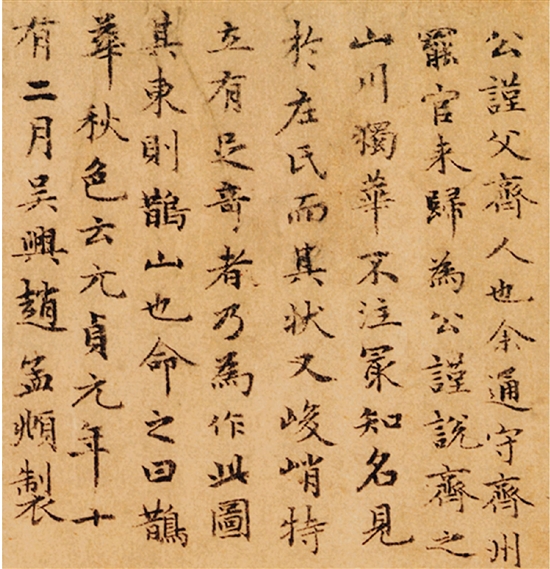 公謹父齊人也余通守齊州
罷官来歸為公謹說齊之
山川獨華不注冣知名見
於左氏而其状又峻峭特
立有足竒者乃為作此圖
其東則鵲山也命之曰鵲
華秋色云元貞元年十
有二月吴興趙孟頫製